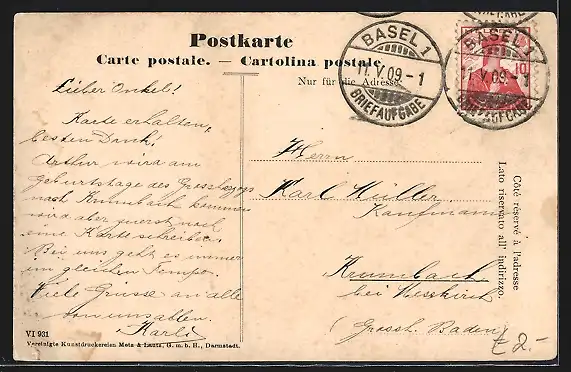 Postkarte
Carte postale. — Cartolina postale
Nur für die Adresse
BASEL 1
11.V.09.-1
BRIEFAUFGABE
BASEL 1
11.V.09.-1
BRIEFAUFGABE
10
Lieber Onkel!
Karte erhalten,
besten Dank!
Arthur wird am
Geburtstage des
nach Krumbach kommen
wird aber zuerst noch
eine Karte schreiben.
Bei uns geht es immer
im gleichen Tempo.
Viele Grüsse an alle
von uns allen.
Karli
Herrn
Karl Müller
Kaufmann
Krumbach
bei Messkirch
(Grossh. Baden)
Côté réservé à l'adresse
Lato riservato all' indirizzo.
£ 2.-
VI 931
Vereinigte Kunstdruckereien Metz & Lautz, G. m. b. H., Darmstadt.